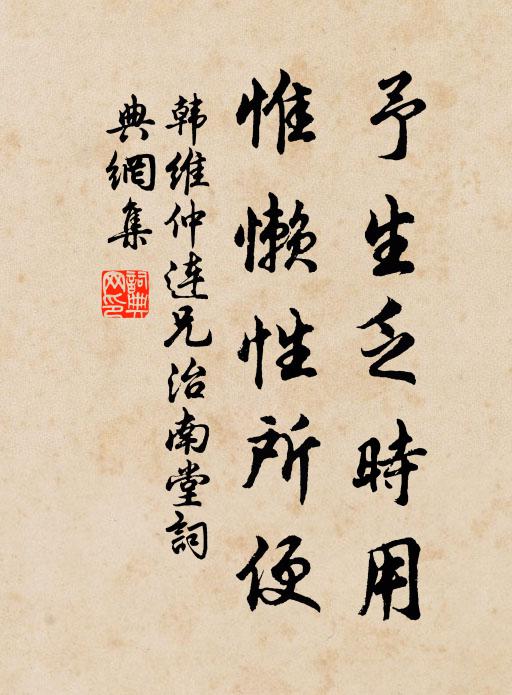 予生乏時用
惟懒性所便
韩維仲连兄治南堂詞
典網集
詞典网印